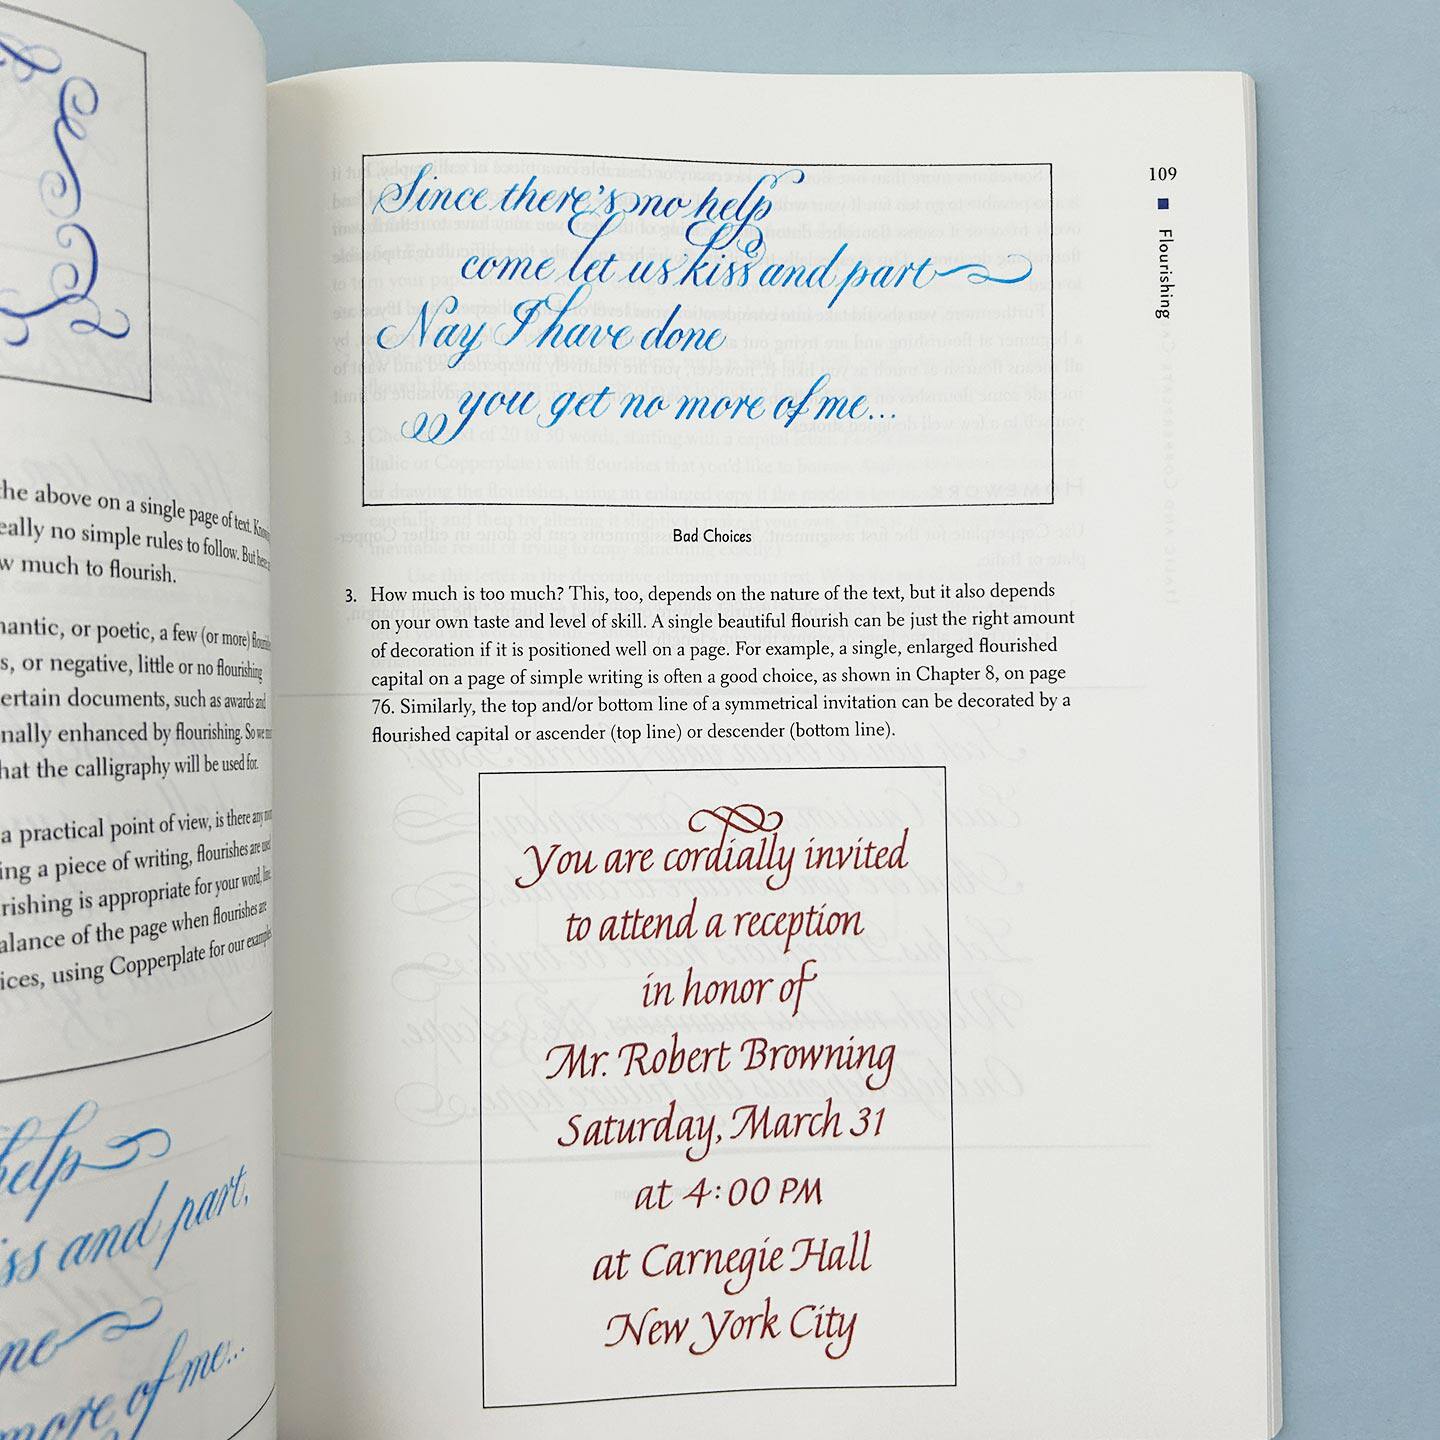 the above on a single page of text.
really no simple rules to follow. But here
how much to flourish.
romantic, or poetic, a few (or more)
s, or negative, little or no flourishing
certain documents, such as awards and
nally enhanced by flourishing. So we
that the calligraphy will be used for.
a practical point of view, is there any
ing a piece of writing, flourishes are
rishing is appropriate for your word, line
alance of the page when flourishes are
ices, using Copperplate for our examples
help
iss and part,
ne
more of me...
109
Flourishing
Since there's no help
come let us kiss and part
Nay I have done
you get no more of me...
Bad Choices
3. How much is too much? This, too, depends on the nature of the text, but it also depends
on your own taste and level of skill. A single beautiful flourish can be just the right amount
of decoration if it is positioned well on a page. For example, a single, enlarged flourished
capital on a page of simple writing is often a good choice, as shown in Chapter 8, on page
76. Similarly, the top and/or bottom line of a symmetrical invitation can be decorated by a
flourished capital or ascender (top line) or descender (bottom line).
You are cordially invited
to attend a reception
in honor of
Mr. Robert Browning
Saturday, March 31
at 4:00 PM
at Carnegie Hall
New York City